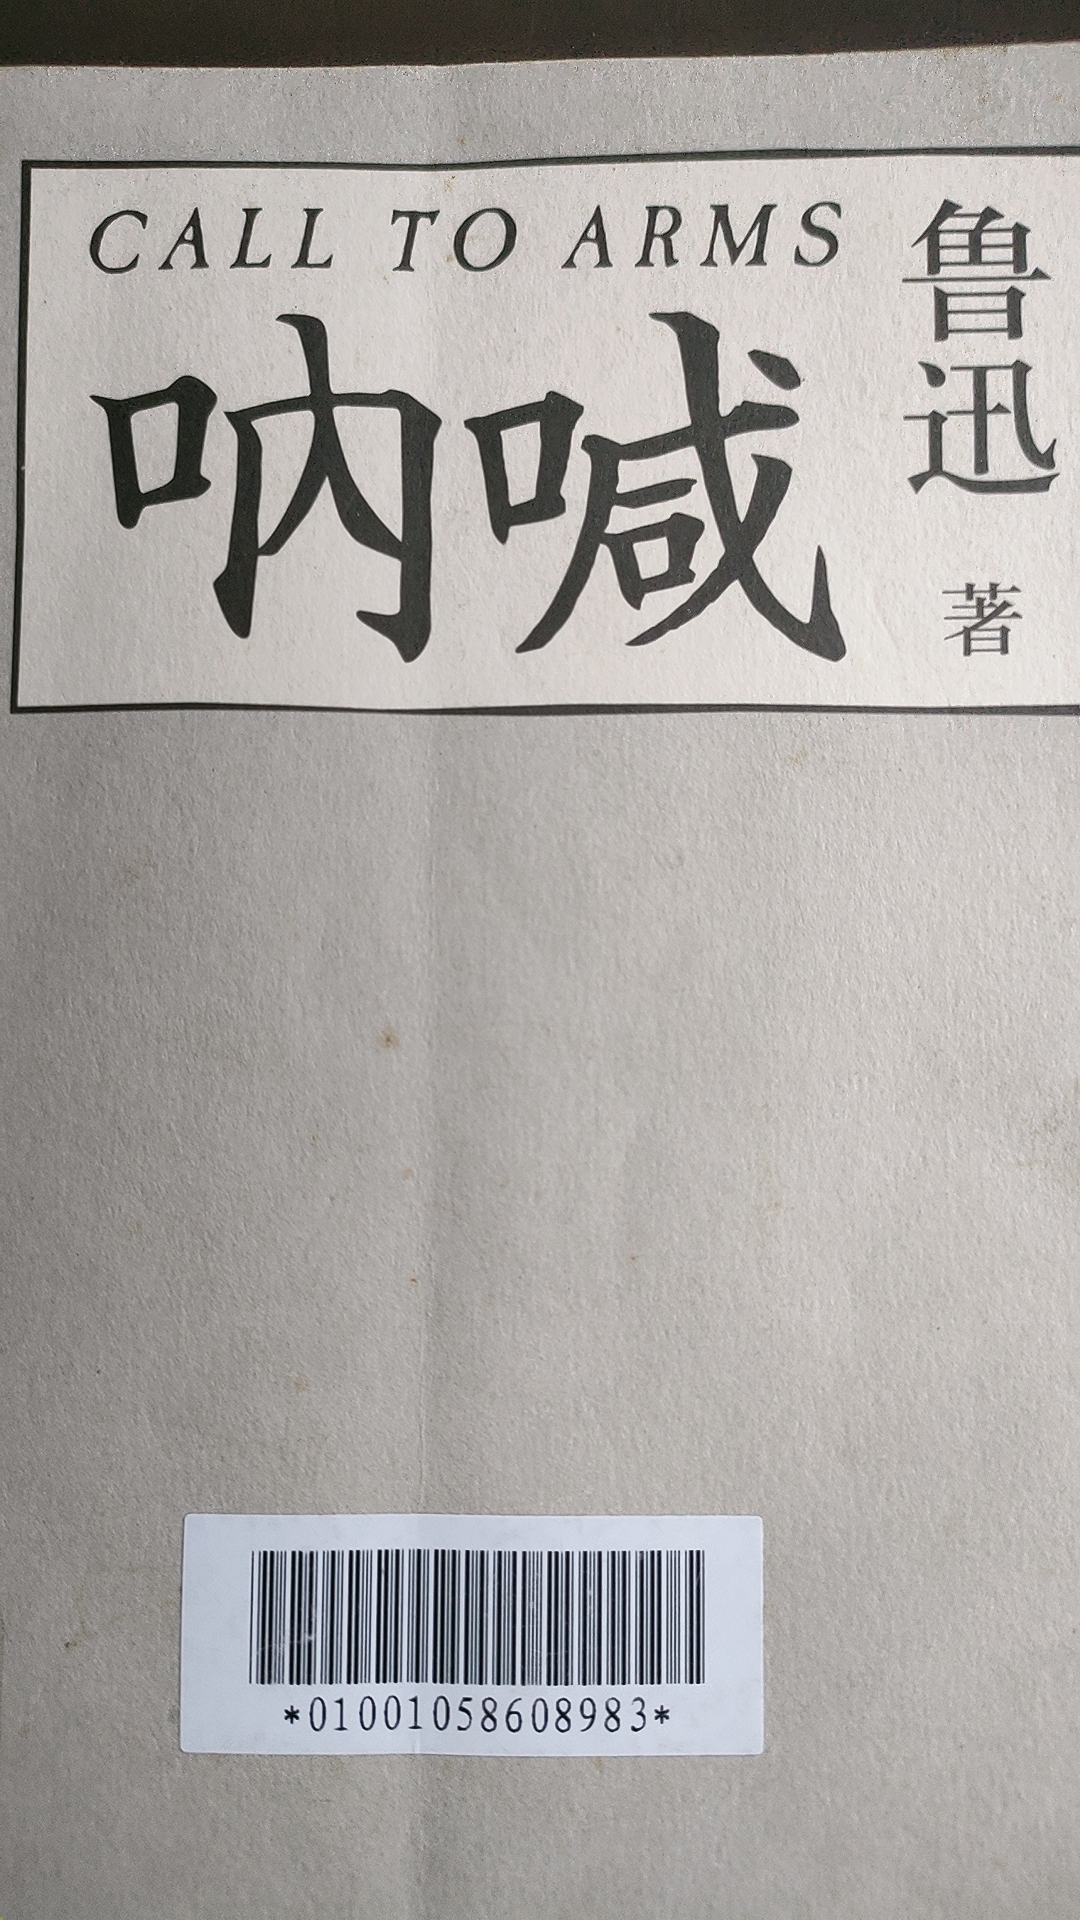 CALL TO ARMS
呐喊
鲁迅
著
*01001058608983*